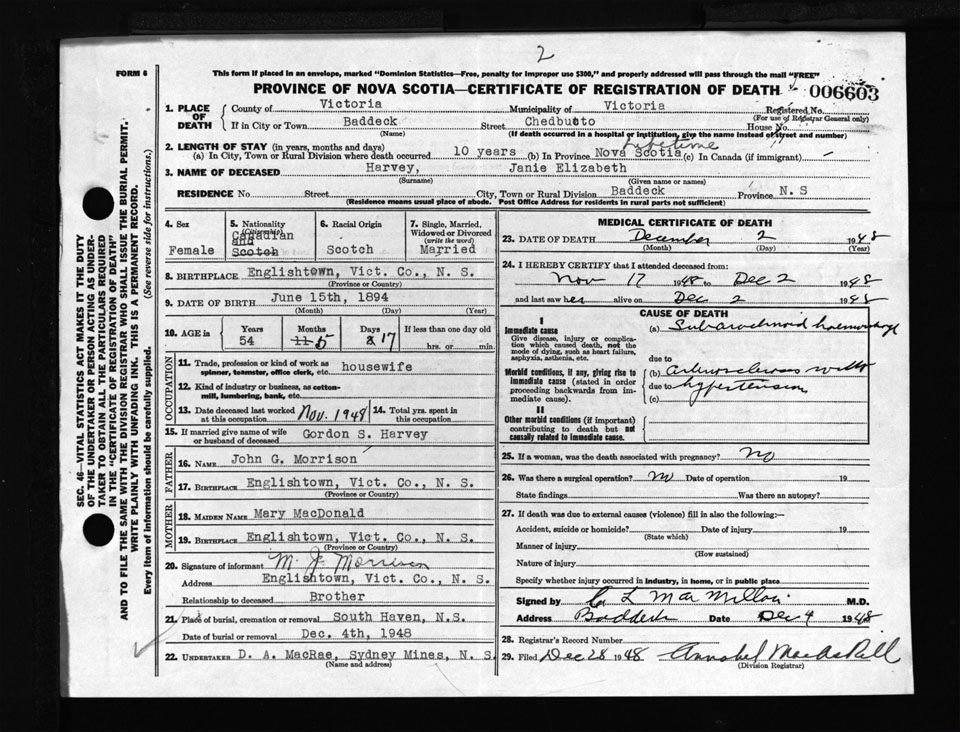 2
FORM 6
This form if placed in an envelope, marked "Dominion Statistics—Free, penalty for improper use $300," and properly addressed will pass through the mail "FREE"
PROVINCE OF NOVA SCOTIA—CERTIFICATE OF REGISTRATION OF DEATH 006603
1. PLACE OF DEATH
County of Victoria Municipality of Victoria Registered No.
(For use of Registrar General only)
If in City or Town Baddeck Street Chedbucto House No.
(Name) (If death occurred in a hospital or institution, give the name instead of street and number)
2. LENGTH OF STAY (in years, months and days)
(a) In City, Town or Rural Division where death occurred 10 years (b) In Province Nova Scotia Lifetime (c) In Canada (if immigrant)
3. NAME OF DECEASED Harvey, Janie Elizabeth
(Surname) (Given name or names)
RESIDENCE No. Street City, Town or Rural Division Baddeck Province N. S
(Residence means usual place of abode. Post Office Address for residents in rural parts not sufficient)
4. Sex
Female
5. Nationality
(Citizenship)
Canadian
and
Scotch
6. Racial Origin
Scotch
7. Single, Married,
Widowed or Divorced
(write the word)
Married
8. BIRTHPLACE Englishtown, Vict. Co., N. S.
(Province or Country)
9. DATE OF BIRTH June 15th, 1894
(Month) (Day) (Year)
10. AGE in
Years Months Days If less than one day old
54 11 5 8 17 hrs. or min.
OCCUPATION
11. Trade, profession or kind of work as
spinner, teamster, office clerk, etc. housewife
12. Kind of industry or business, as cotton-
mill, lumbering, bank, etc.
13. Date deceased last worked
at this occupation Nov. 1948
14. Total yrs. spent in
this occupation
15. If married give name of wife
or husband of deceased Gordon S. Harvey
FATHER
16. NAME John G. Morrison
17. BIRTHPLACE Englishtown, Vict. Co., N. S.
(Province or Country)
MOTHER
18. MAIDEN NAME Mary MacDonald
19. BIRTHPLACE Englishtown, Vict. Co., N. S.
(Province or Country)
20. Signature of informant M. J. Morrison
Address Englishtown, Vict. Co., N. S.
Relationship to deceased Brother
21. Place of burial, cremation or removal South Haven, N.S.
Date of burial or removal Dec. 4th, 1948
22. UNDERTAKER D. A. MacRae, Sydney Mines, N. S.
(Name and address)
MEDICAL CERTIFICATE OF DEATH
23. DATE OF DEATH December 2 1948
(Month) (Day) (Year)
24. I HEREBY CERTIFY that I attended deceased from:
Nov 17 1948 to Dec 2 1948
and last saw her alive on Dec 2 1948
CAUSE OF DEATH
I
Immediate cause
Give disease, injury or complica-
tion which caused death, not the
mode of dying, such as heart failure,
asphyxia, asthenia, etc.
(a) Subarachnoid haemorrhage
due to
Morbid conditions, if any, giving rise to
immediate cause (stated in order
proceeding backwards from im-
mediate cause).
(b) arteriosclerosis with
due to hypertension
(c)
II
Other morbid conditions (if important)
contributing to death but not
causally related to immediate cause.
25. If a woman, was the death associated with pregnancy? No
26. Was there a surgical operation? No Date of operation 19
State findings Was there an autopsy?
27. If death was due to external causes (violence) fill in also the following:—
Accident, suicide or homicide? Date of injury 19
(State which)
Manner of injury
(How sustained)
Nature of injury
Specify whether injury occurred in industry, in home, or in public place
Signed by C L MacMillan M.D.
Address Baddeck Date Dec 4 1948
28. Registrar's Record Number
29. Filed Dec 28 1948 Annabel MacAskill
(Division Registrar)
SEC. 46—VITAL STATISTICS ACT MAKES IT THE DUTY
OF THE UNDERTAKER OR PERSON ACTING AS UNDER-
TAKER TO OBTAIN ALL THE PARTICULARS REQUIRED
IN THE "CERTIFICATE OF REGISTRATION OF DEATH"
AND TO FILE THE SAME WITH THE DIVISION REGISTRAR WHO SHALL ISSUE THE BURIAL PERMIT.
WRITE PLAINLY WITH UNFADING INK. THIS IS A PERMANENT RECORD.
Every item of information should be carefully supplied. (See reverse side for instructions.)